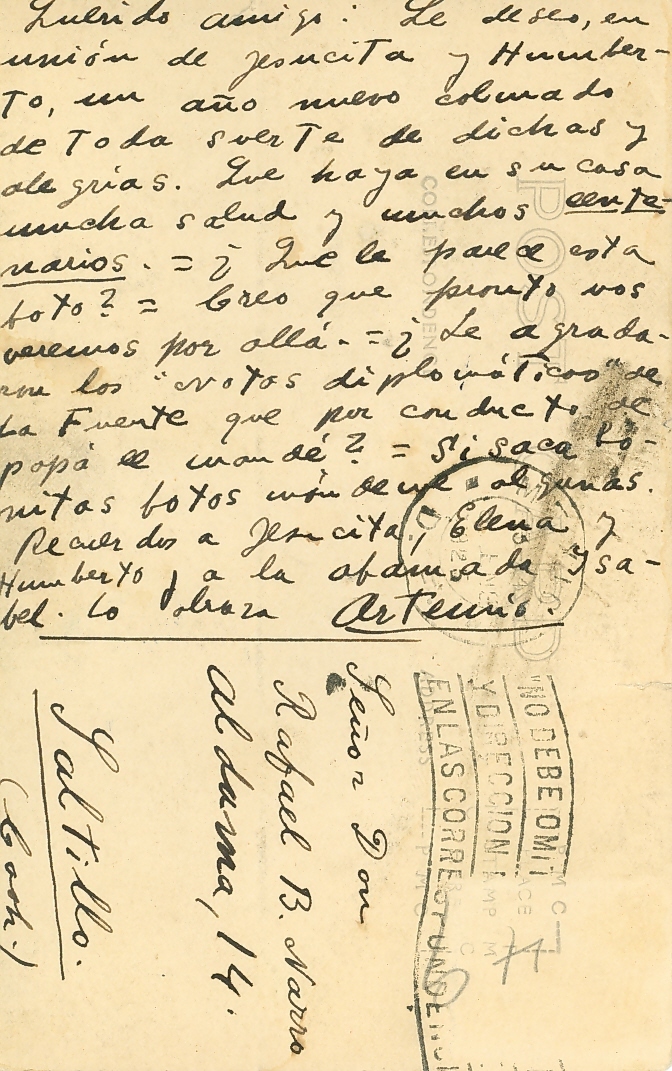 Querido amigo: Le deseo, en
unión de Jesucita y Humber-
to, un año nuevo colmado
de toda suerte de dichas y
alegrías. Que haya en su casa
mucha salud y muchos cente-
narios. = ¿ Que le parece esta
foto? = Creo que pronto nos
veremos por allá. = ¿ Le agrada-
ron los "Notas diplomáticas" de
La Fuente que por conducto de
papá le mandé? = Si saca bo-
nitas fotos mándeme algunas.
Recuerdos a Jesucita, Elena y
Humberto, y a la ahamada Ysa-
bel. Lo abraza Artemio.
Señor Don
Rafael B. Narro
Aldama, 14.
Saltillo.
(Coah.)
"NO DEBE OMIT
Y DIRECCION
EN LAS CORRESPONDENCI
POST
CORRESPONDENC